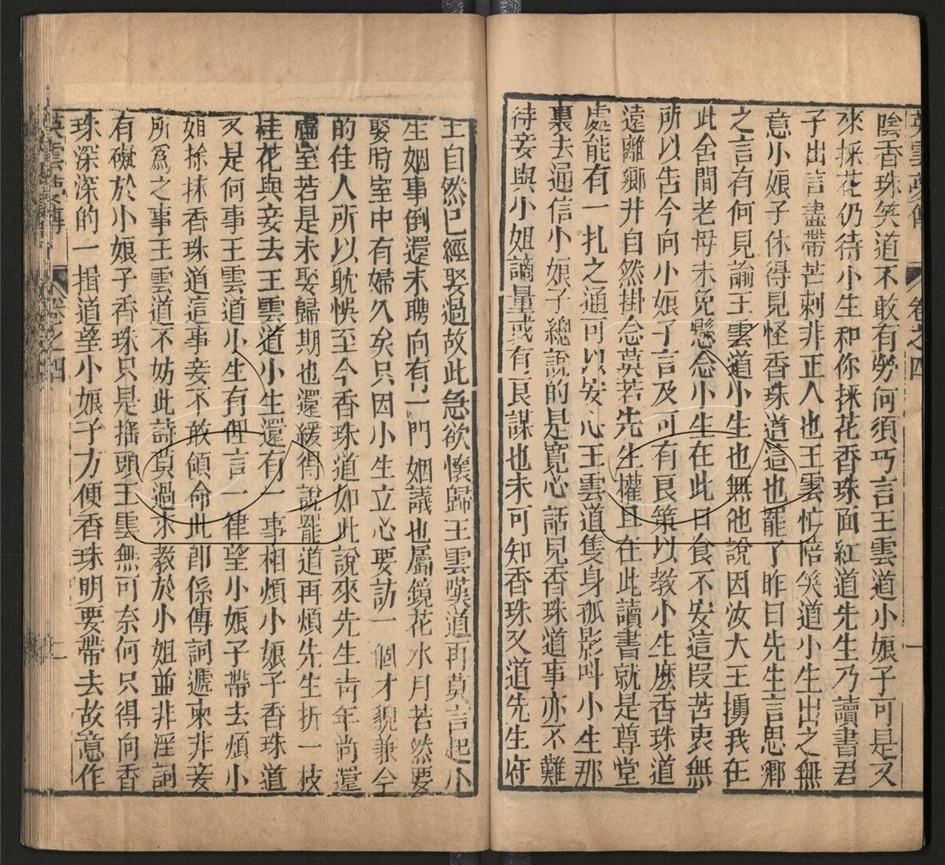 英雲夢傳 卷之四 一
陰香珠笑道不敢有勞何須巧言王雲道小娘子可是又
來採花仍待小生和你採花香珠面紅道先生乃讀書君
子出言盡帶芒刺非正人也王雲忙陪笑道小生出之無
意小娘子休得見怪香珠道這也罷了昨日先生言思鄉
之言有何見諭王雲道小生也無他說因汝大王擄我在
此舍間老母未免懸念小生在此日食不安這段苦衷無
所以告今向小娘子言及可有良策以教小生麽香珠道
遠離鄉井自然掛念莫若先生權且在此讀書就是尊堂
處能有一扎之通可以安心王雲道隻身孤影叫小生那
裏去通信小娘子總說的是寬心話兒香珠道事亦不難
待妾與小姐謫量或有良謀也未可知香珠又道先生府
上自然已經娶過故此急欲懷歸王雲嘆道再莫言起小
生姻事倒還未聘向有一門姻議也屬鏡花水月若然要
娶時室中有婦久矣只因小生立心要訪一個才貌兼全
的佳人所以耽悞至今香珠道如此說來先生靑年尚還
虛室若是未娶歸期也還緩得說罷道再煩先生折一枝
桂花與妾去王雲道小生還有一事相煩小娘子香珠道
又是何事王雲道小生有俚言一律望小娘子帶去煩小
姐捈抹香珠道這事妾不敢領命此卽係傳詞遞柬非妾
所爲之事王雲道不妨此詩莫過求教於小姐並非淫詞
有礙於小娘子香珠只是搖頭王雲無可奈何只得向香
珠深深的一揖道望小娘子方便香珠明要帶去故意作
英雲夢傳 卷之四 一